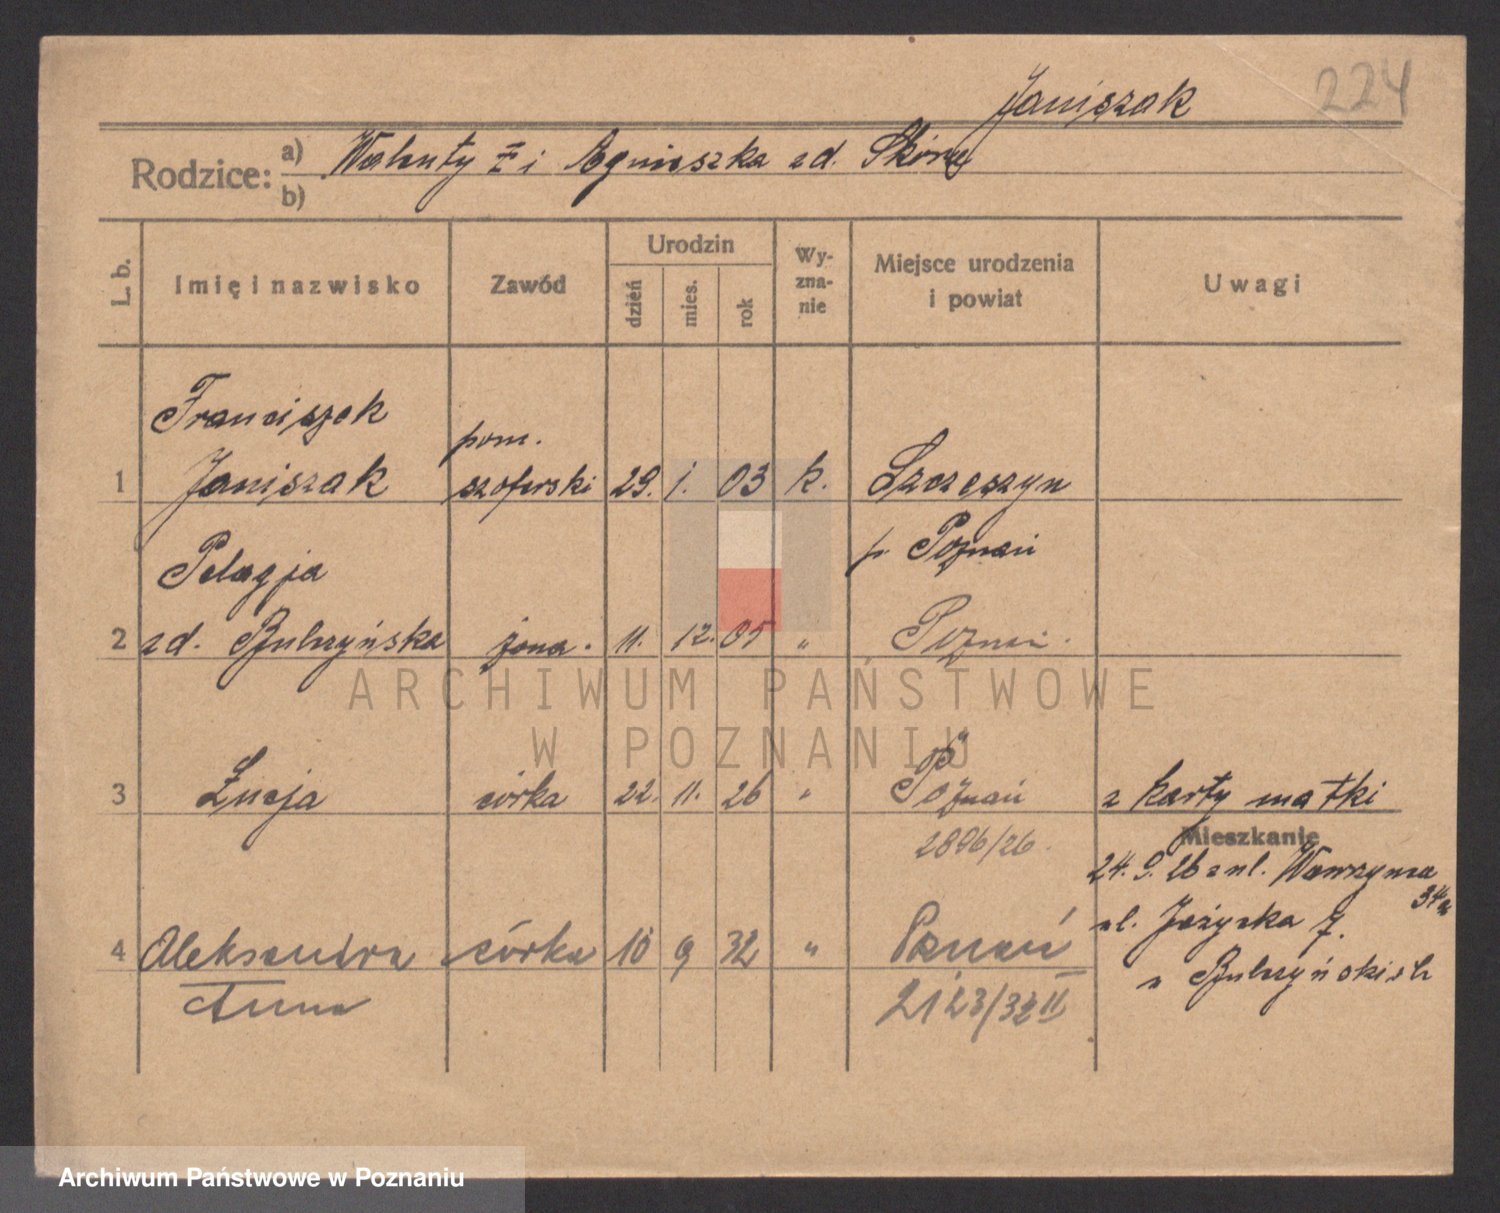 224
Janiszak
Rodzice: a) Walenty i Agnieszka zd. Skóra
b)
L. b.
Imię i nazwisko
Zawód
Urodzin
dzień
mies.
rok
Wy-
zna-
nie
Miejsce urodzenia
i powiat
Uwagi
Franciszek
pom.
1 Janiszak szoferski 29. 1. 03 k. Szczeszyn
p. Poznań
Pelagja
2 zd. Bulczyńska żona. 11. 12. 05 " Poznań.
ARCHIWUM PAŃSTWOWE
W POZNANIU
3 Łucja córka 22. 11. 26 " Poznań z karty matki
2896/26.
Mieszkanie
24. 9. 26 z ul. Wawrzyńca
34a
4 Aleksandra córka 10 9 32 " Poznań
ul. Jeżycka 7.
Anna
2123/32 II
u Bulczyńskich
Archiwum Państwowe w Poznaniu